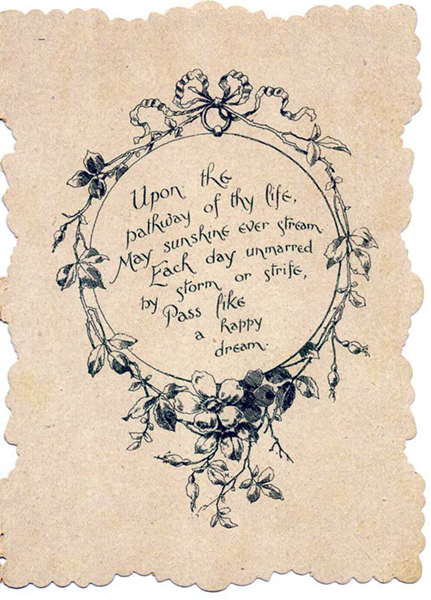 Upon the
pathway of thy life,
May sunshine ever stream
Each day unmarred
by storm or strife,
Pass like
a happy
dream.